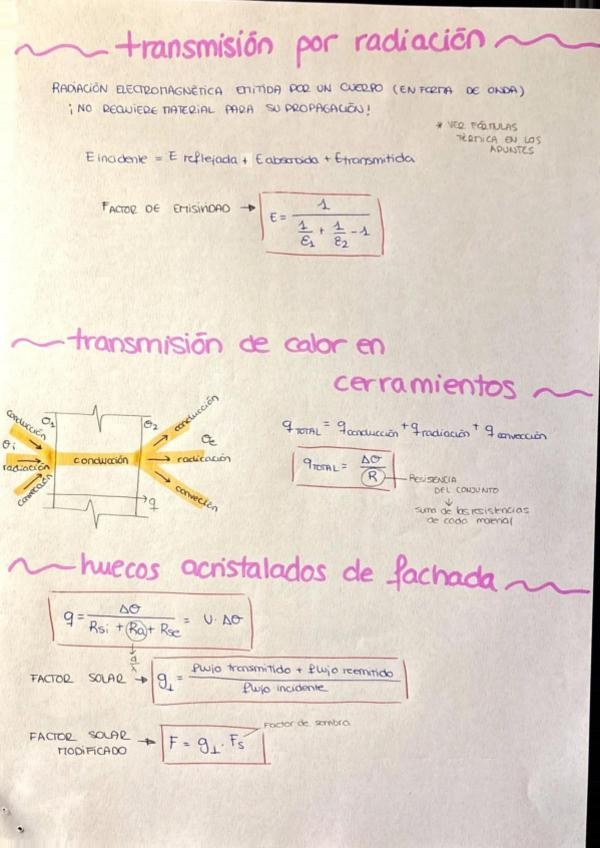 transmisión por radiación
RADIACIÓN ELECTROMAGNÉTICA EMITIDA POR UN CUERPO (EN FORMA DE ONDA)
¡NO REQUIERE MATERIAL PARA SU PROPAGACIÓN!
* VER FÓRMULAS
TÉRMICA EN LOS
APUNTES
E incidente = E reflejada + E absorbida + E transmitida
FACTOR DE EMISIVIDAD → E = 1 / (1/ε1 + 1/ε2 - 1)
transmisión de calor en
cerramientos
conducción θ1 θ2 conducción
θi θe
radiación conducción radicación
convección convección
q
q TOTAL = q conducción + q radiación + q convección
q TOTAL = Δθ / R
RESISENCIA
DEL CONJUNTO
↓
suma de las resistencias
de cada material
huecos acristalados de fachada
q = Δθ / (Rsi + Ra + Rse) = U · Δθ
↓
d/λ
FACTOR SOLAR → g⊥ = flujo transmitido + flujo reemitido / flujo incidente
FACTOR SOLAR
MODIFICADO → F = g⊥ · Fs
Factor de sombra